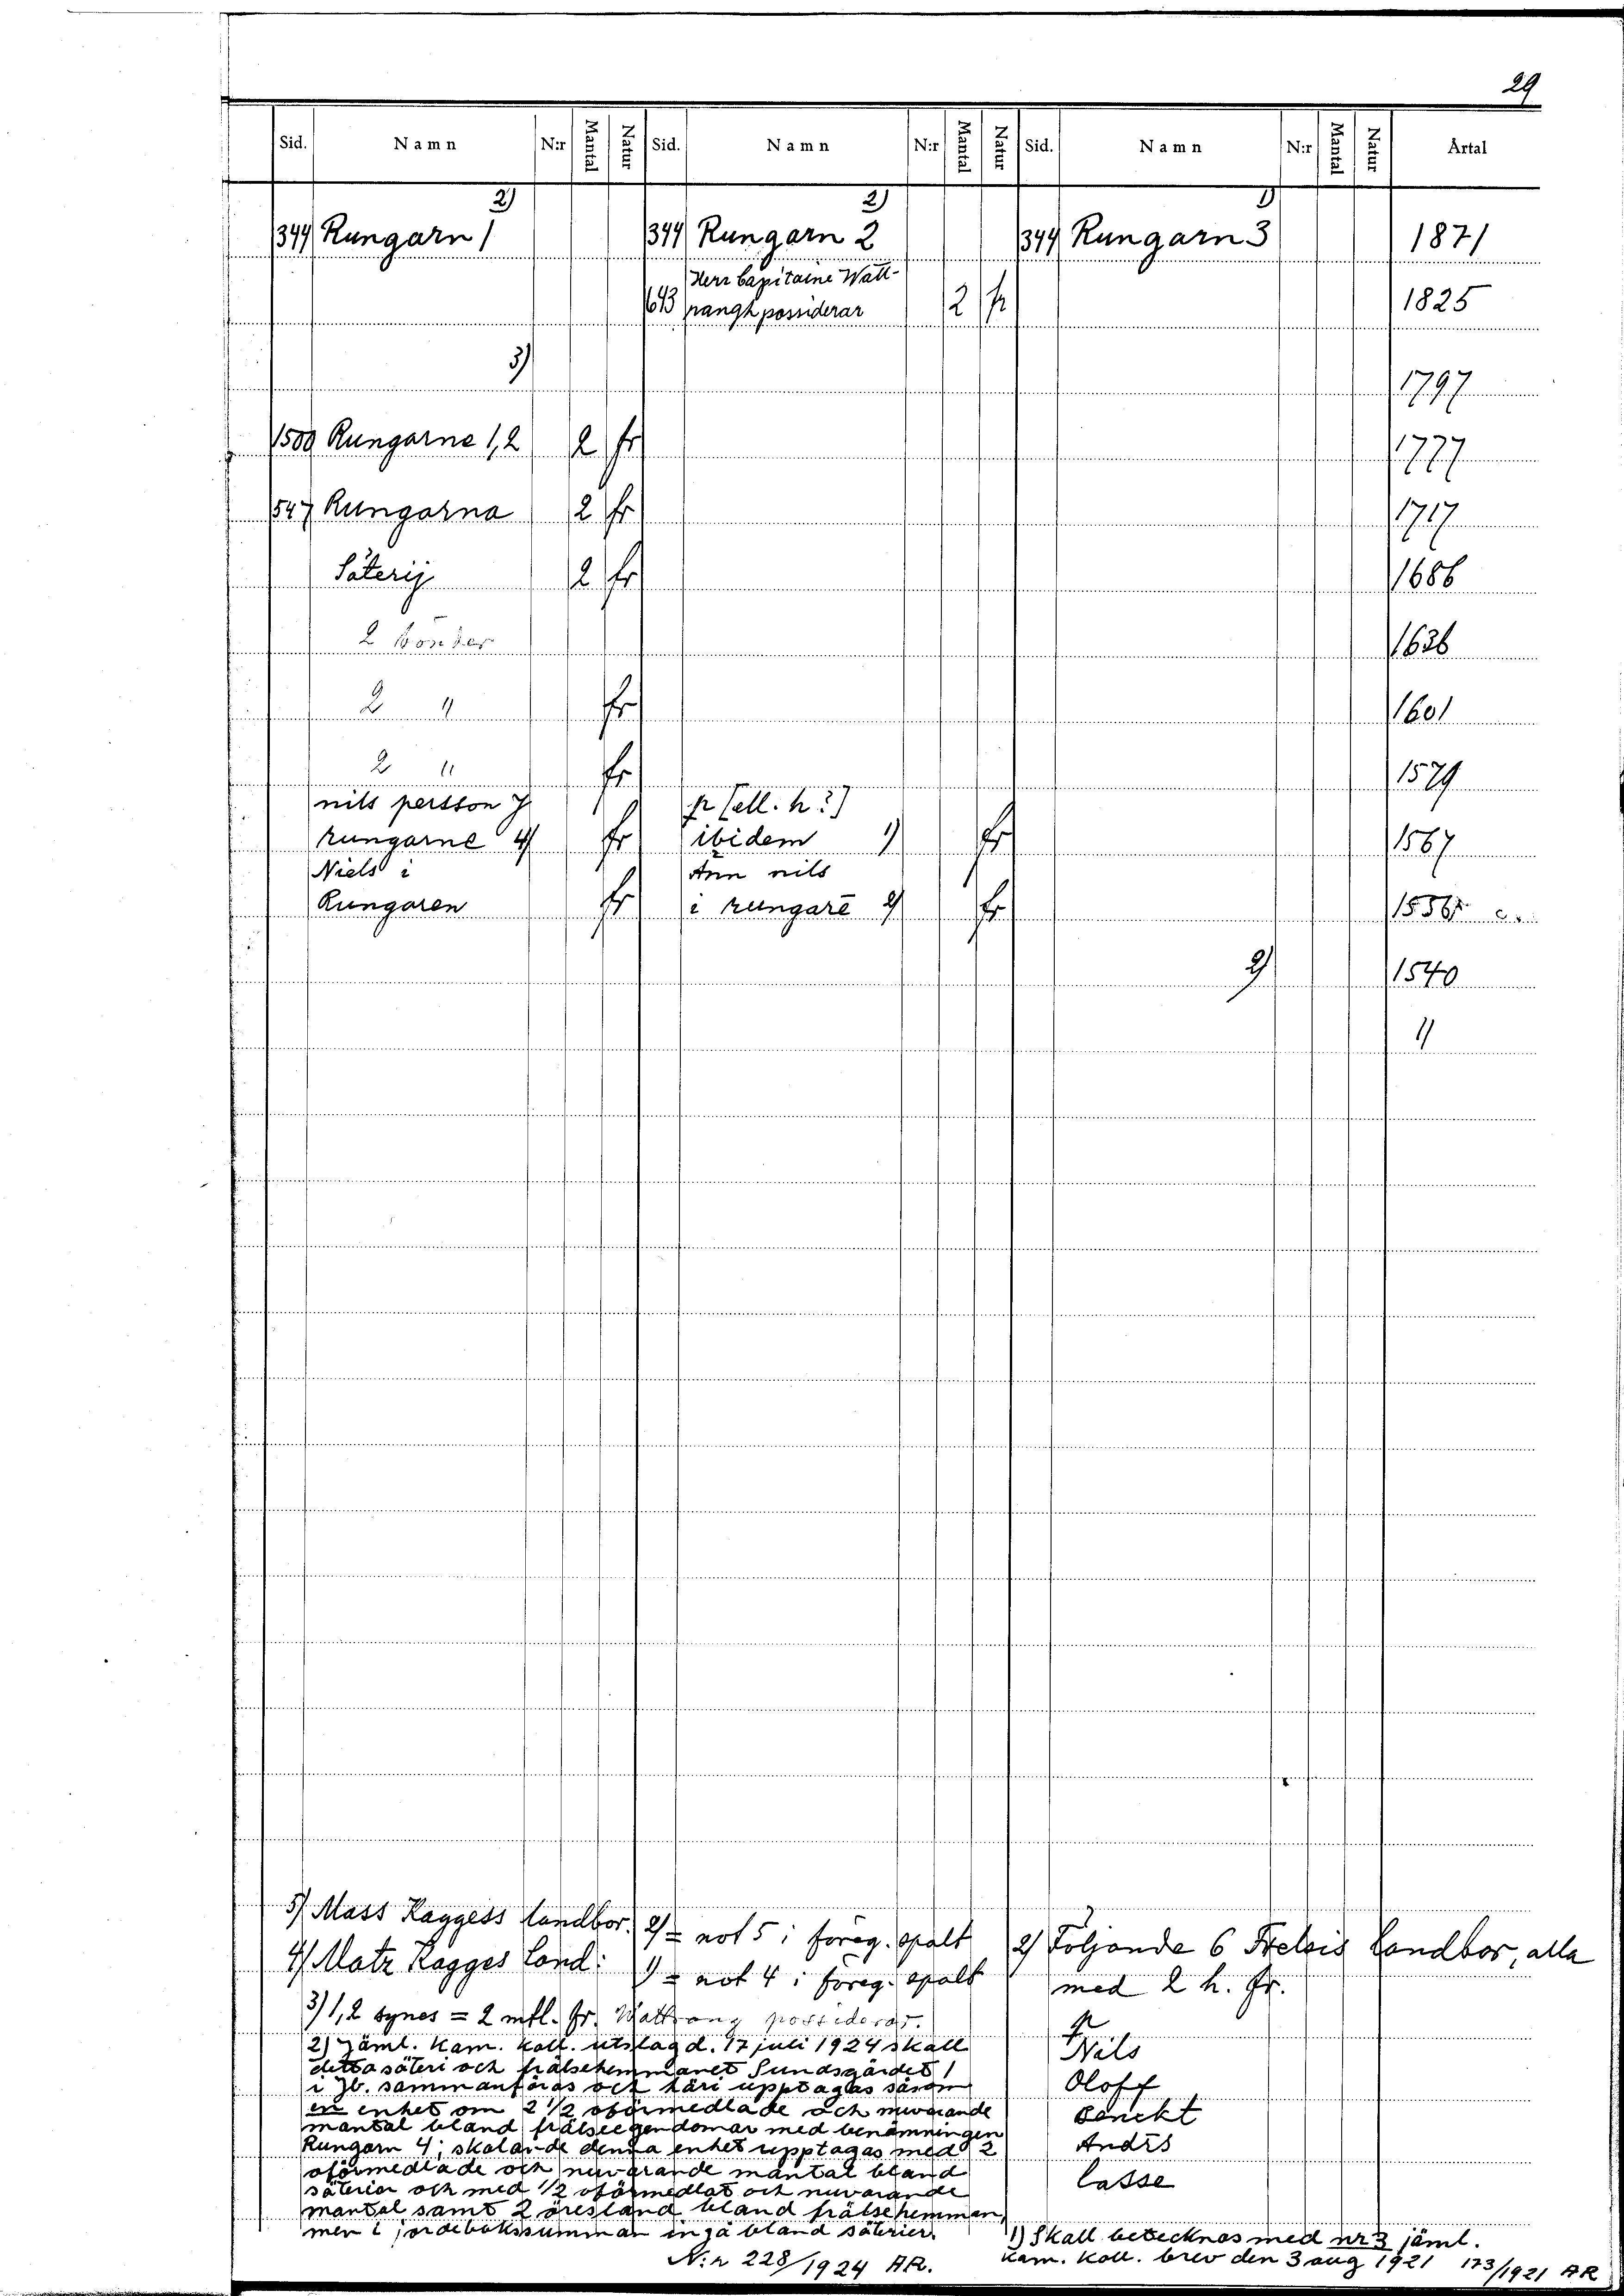 29
Sid. Namn N:r Mantal Natur Sid. Namn N:r Mantal Natur Sid. Namn N:r Mantal Natur Årtal
2) 2) 1)
344 Rungarn 1 344 Rungarn 2 344 Rungarn 3 1871
Herr Capitaine Watt-
643 rangh possiderar 2 fr 1825
3) 1797
1500 Rungarne 1,2 2 fr 1777
547 Rungarna 2 fr 1717
Säterij 2 fr 1686
2 bönder 1636
2 " fr 1601
2 " fr 1579
nils persson J p [ell. h?]
rungarne 4) fr ibidem 1) fr 1567
Niels i Ann nils
Rungaren fr i rungarē 2) fr
2) 1540
1)
5) Mass Kaggess landbor. 2) = not 5 i föreg. spalt 2) Följande 6 Frelsis Landbor, alla
4) Matz Kagges Land: 1) = not 4 i föreg. spalt med 2 h. fr.
3) 1,2 synes = 2 mtl. fr. Wattrang possiderar.
2) Jäml. Kam. koll. utslag d. 17 juli 1924 skall Nils
detta säteri och frälsehemmanet Sundsgärdet 1
i Jb. sammanföras och häri upptagas såsom Oloff
en enhet om 2 1/2 oförmedlade och nuvarande
mantal bland frälseegendomar med benämningen Benckt
Rungarn 4; skolande denna enhet upptagas med 2 Andrs
oförmedlade och nuvarande mantal bland
säterier och med 1/2 oförmedlat och nuvarande Lasse
mantal samt 2 öresland bland frälsehemman,
men i jordebokssumman ingå bland säterier.
N:r 228/1924 AR.
1) Skall betecknas med nr 3 jäml.
Kam. Koll. brev den 3 aug 1921 173/1921 AR